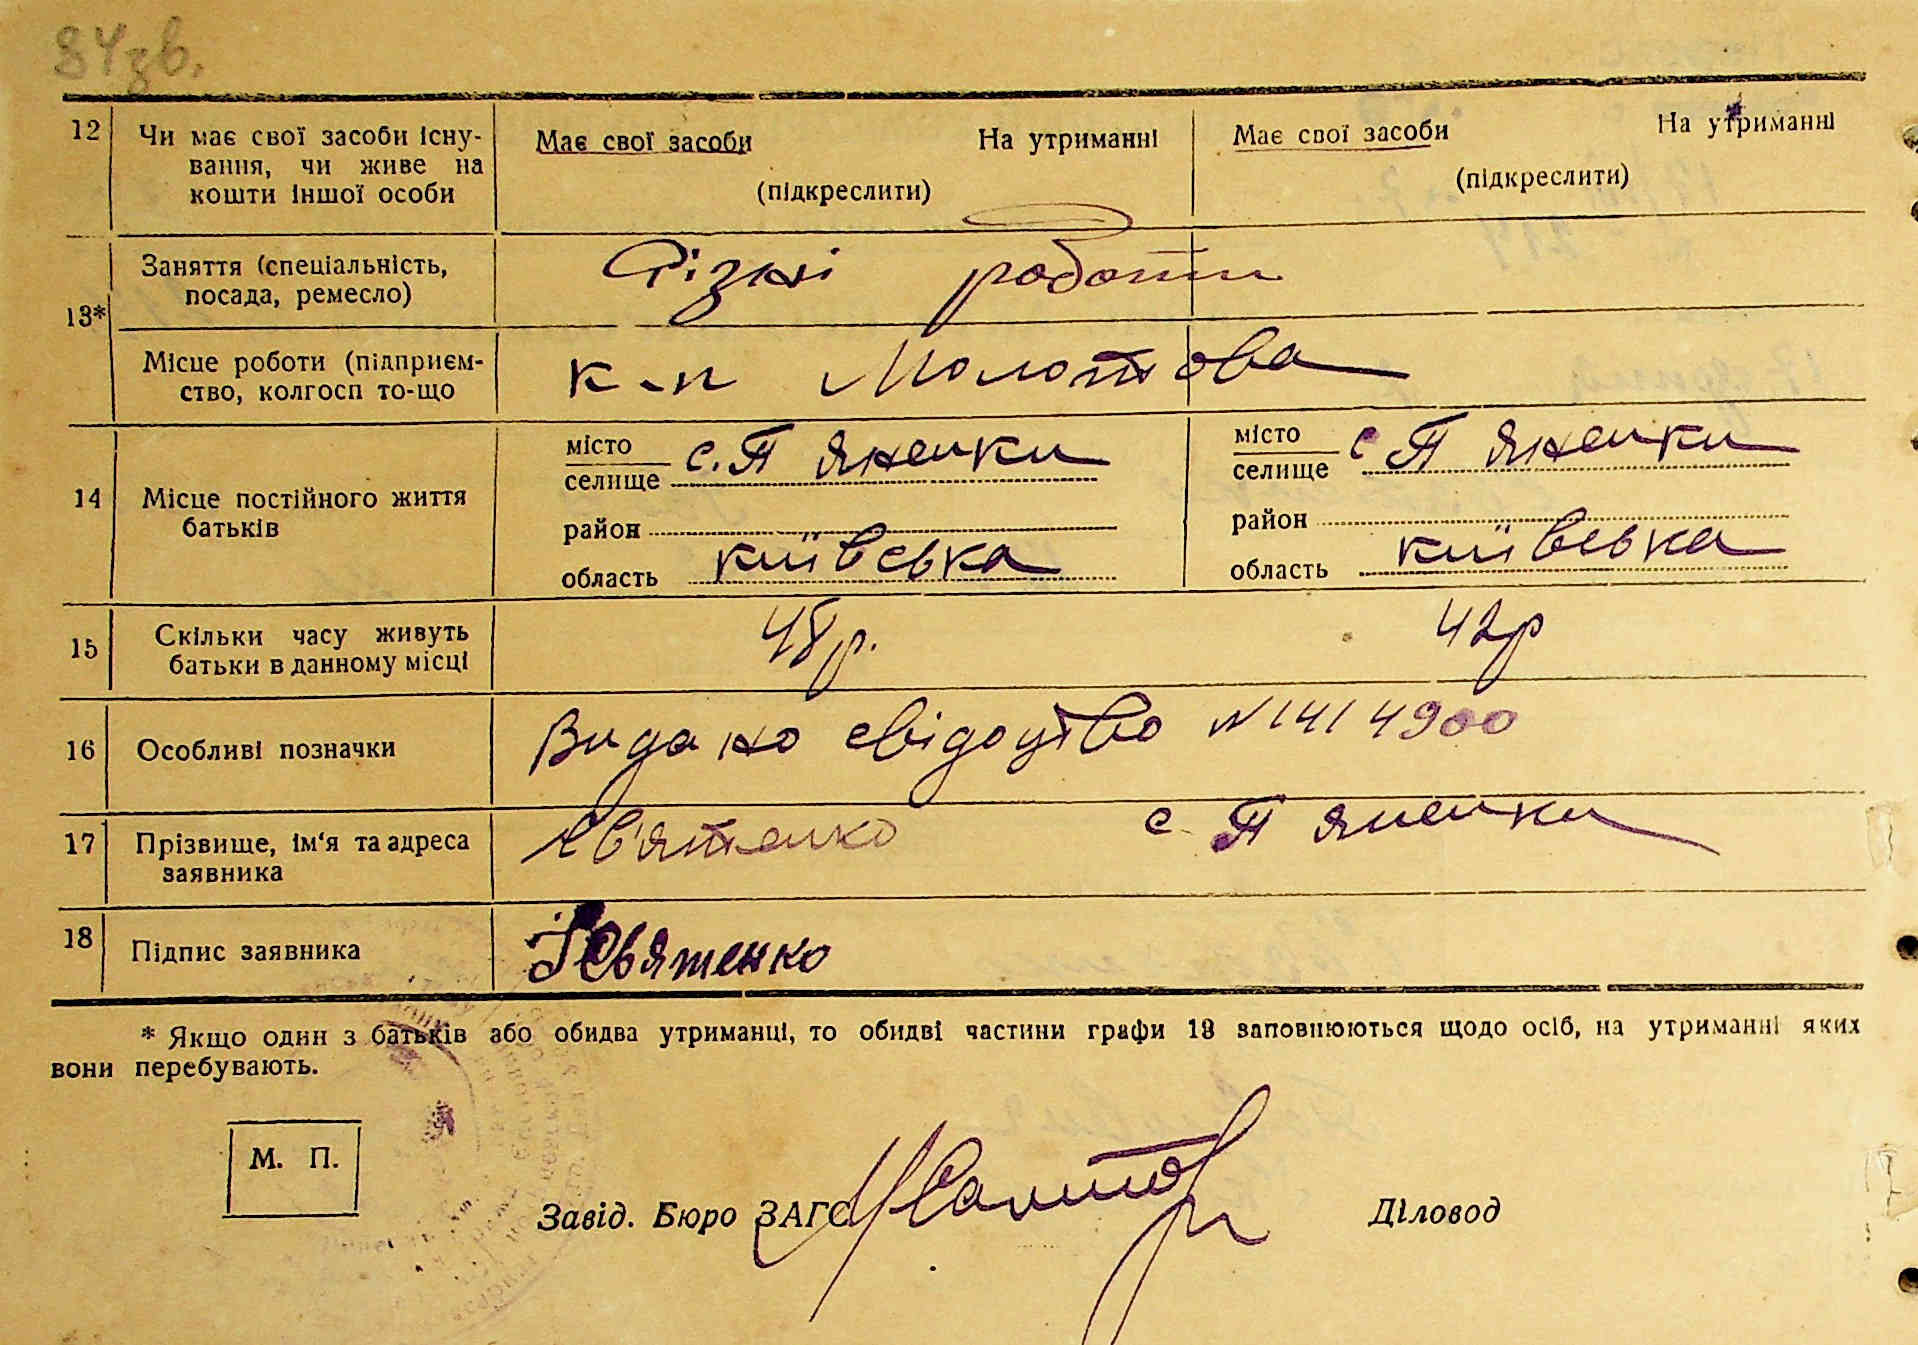 84зв.
12 Чи має свої засоби існу- Має свої засоби На утриманні Має свої засоби На утриманні
вання, чи живе на
кошти іншої особи (підкреслити) (підкреслити)
13*
Заняття (спеціальність, Різні роботи
посада, ремесло)
Місце роботи (підприєм- к-п Молотова
ство, колгосп то-що
14 Місце постійного життя
батьків
місто с. П яненки місто с П яненки
селище селище
район район
область київська область київська
15 Скільки часу живуть 48 р. 42 р
батьки в данному місці
16 Особливі позначки Видано свідоцтво № 1414900
17 Прізвище, ім'я та адреса Св'ятенко с. П яненки
заявника
18 Підпис заявника Святенко
* Якщо один з батьків або обидва утриманці, то обидві частини графи 13 заповнюються щодо осіб, на утриманні яких
вони перебувають.
М. П.
Завід. Бюро ЗАГС Діловод